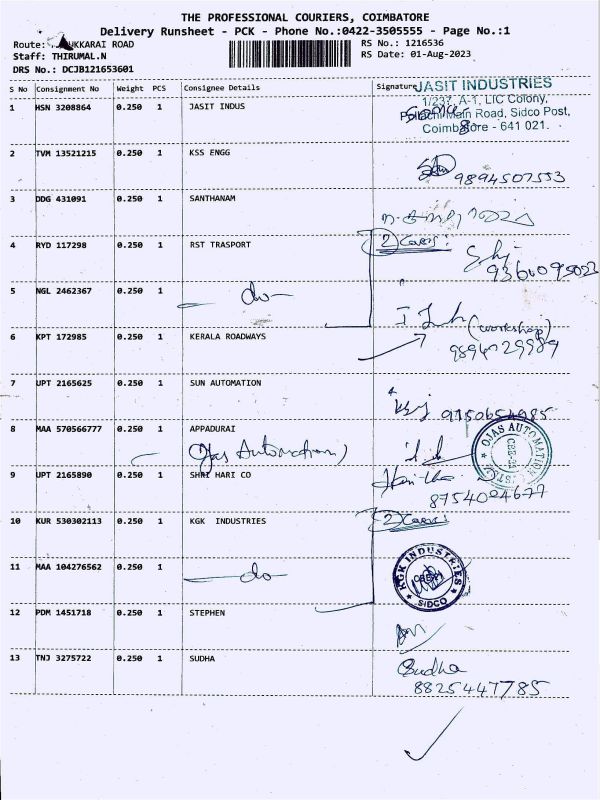 THE PROFESSIONAL COURIERS, COIMBATORE
Delivery Runsheet - PCK - Phone No.:0422-3505555 - Page No.:1
Route: UKKARAI ROAD
RS No.: 1216536
Staff: THIRUMAL.N
RS Date: 01-Aug-2023
DRS No.: DCJB121653601
S No Consignment No Weight PCS Consignee Details Signature
JASIT INDUSTRIES
1/237, A-1, LIC Colony,
Pollachi Main Road, Sidco Post,
Coimbatore - 641 021.
1 HSN 3208864 0.250 1 JASIT INDUS
2 TVM 13521215 0.250 1 KSS ENGG
9894507553
3 DDG 431091 0.250 1 SANTHANAM
4 RYD 117298 0.250 1 RST TRASPORT
2 Covers:
5 NGL 2462367 0.250 1 do
6 KPT 172985 0.250 1 KERALA ROADWAYS
(workshop)
7 UPT 2165625 0.250 1 SUN AUTOMATION
8 MAA 570566777 0.250 1 APPADURAI
(Ojas Automation)
OJAS AUTOMATION
9 UPT 2165890 0.250 1 SHRI HARI CO
8754024677
10 KUR 530302113 0.250 1 KGK INDUSTRIES
2 Covers
11 MAA 104276562 0.250 1 do
KGK INDUSTRIES
SIDCO
12 PDM 1451718 0.250 1 STEPHEN
13 TNJ 3275722 0.250 1 SUDHA
Sudha
8825447785